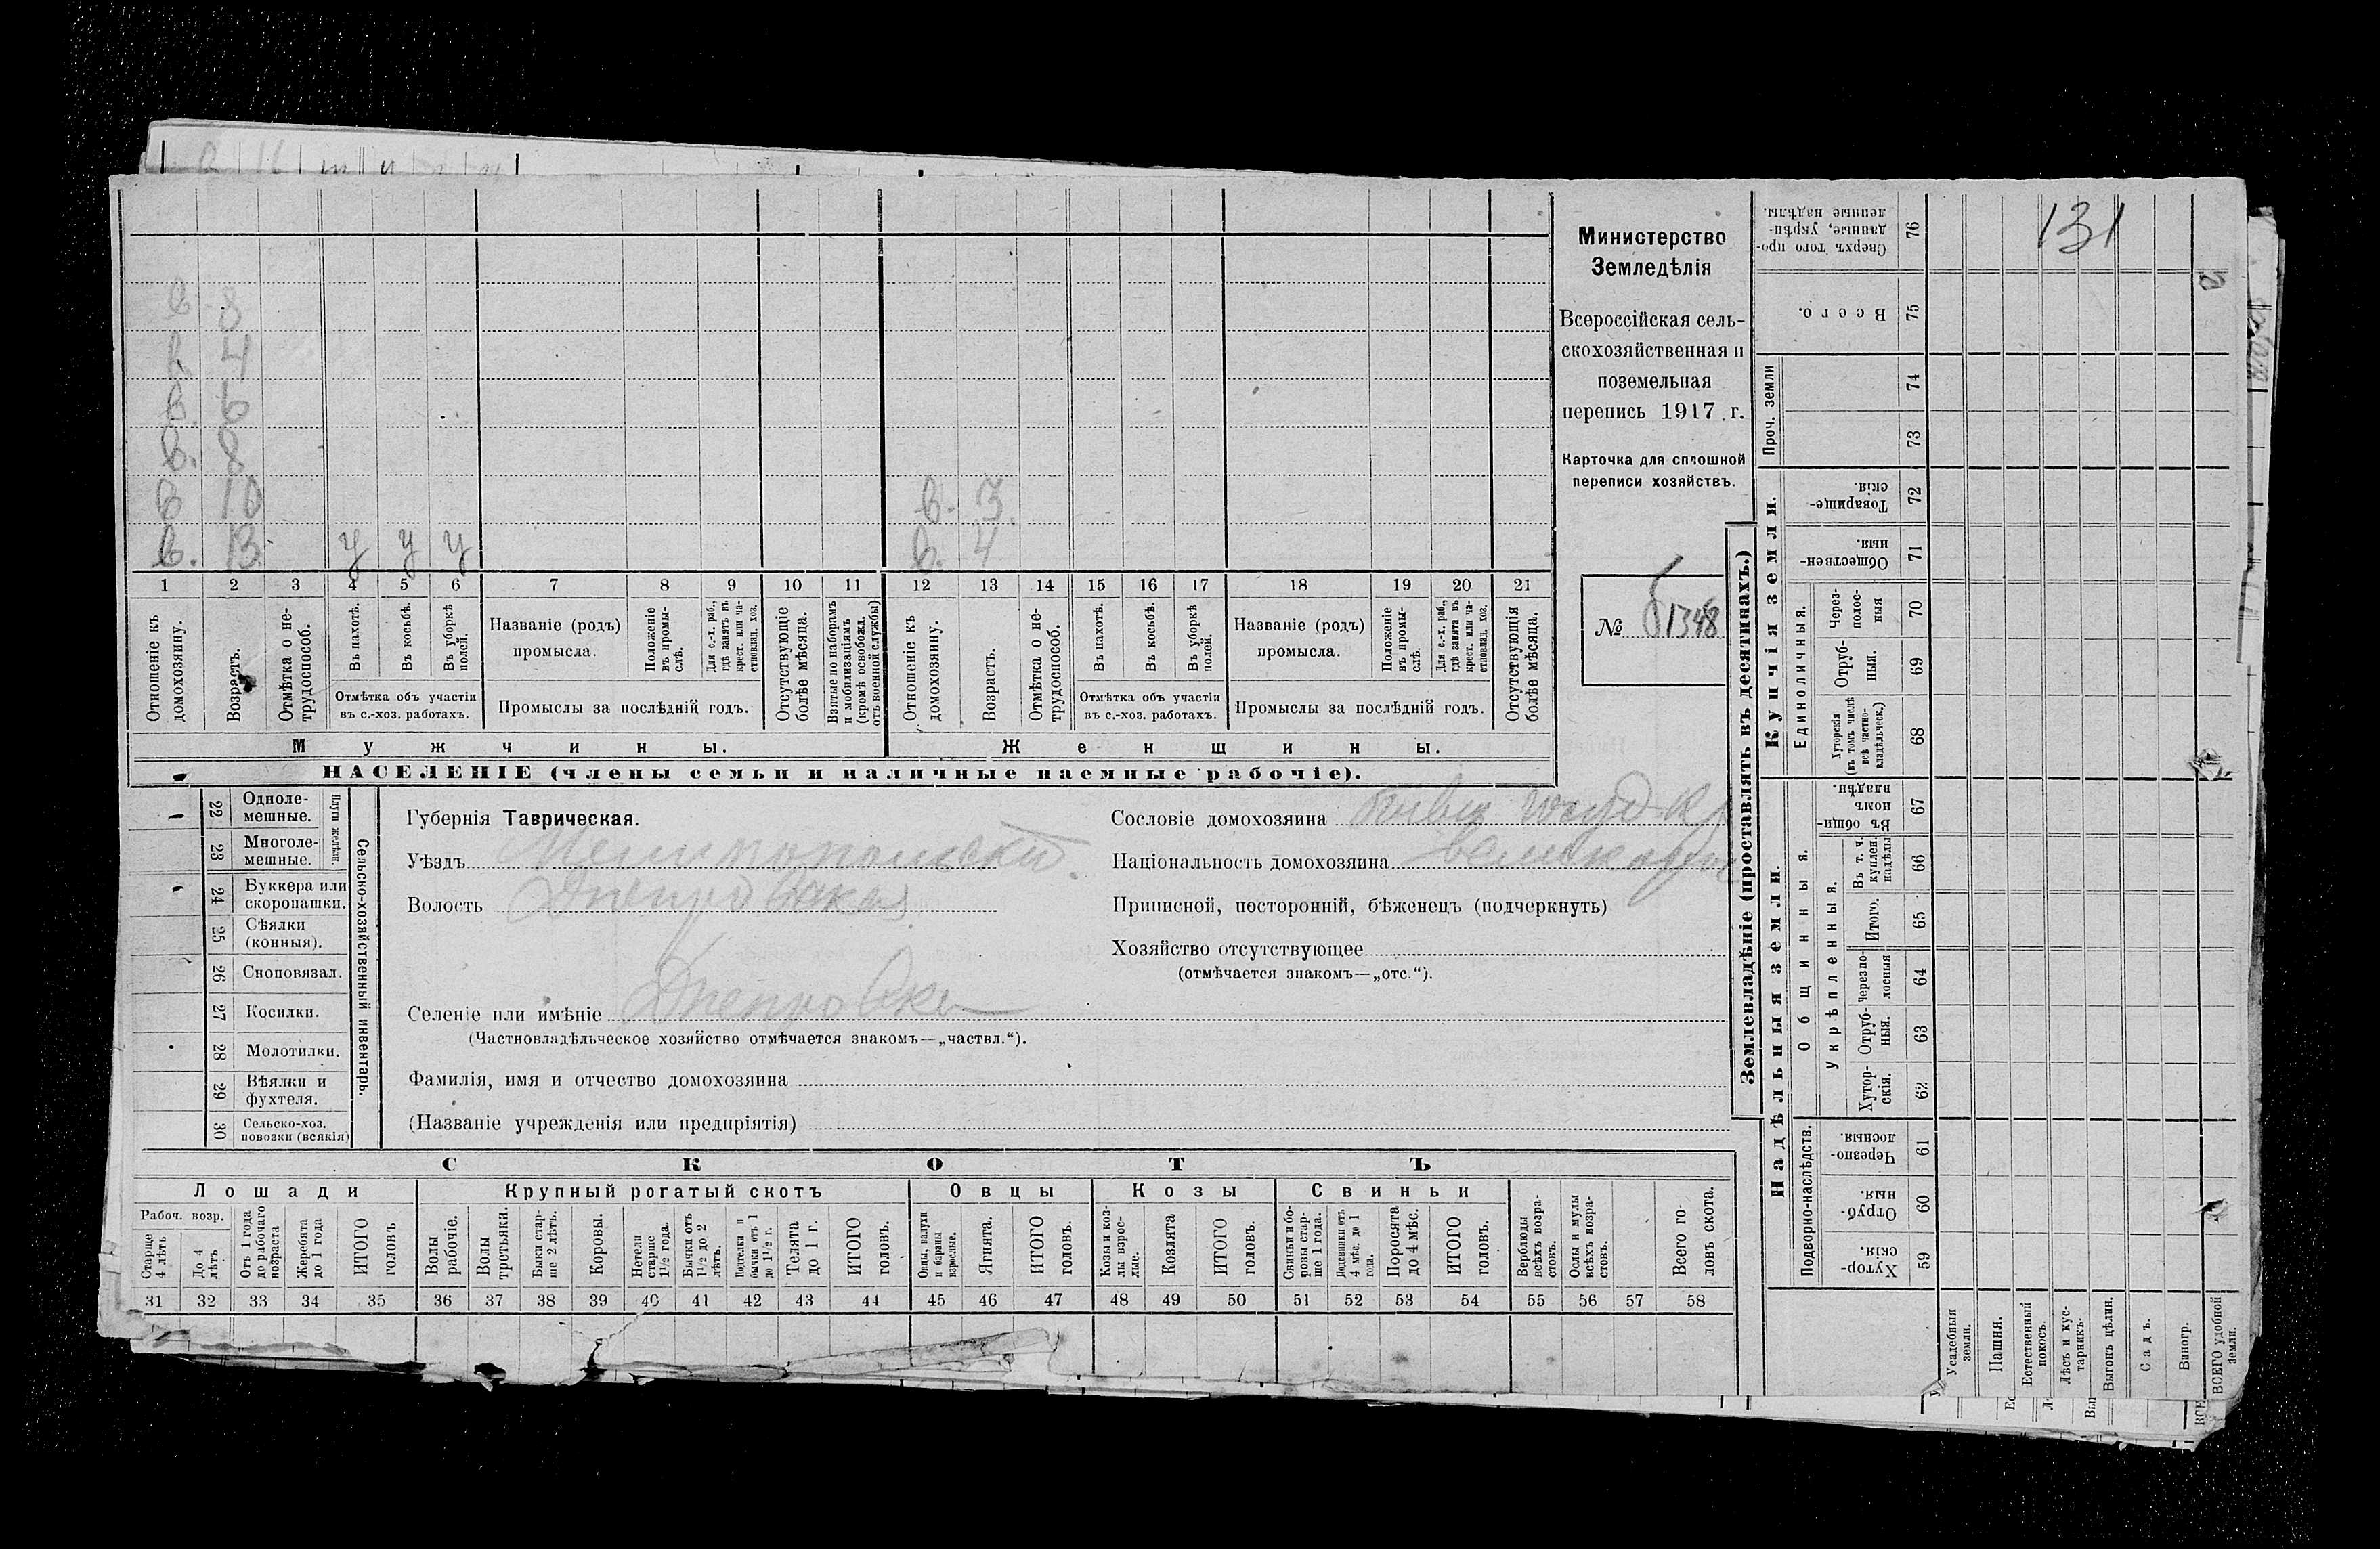 131
в 8
в 4
в. 6
в. 8
в 10 в. 3
в. 13 у у у в. 4
1 2 3 4 5 6 7 8 9 10 11 12 13 14 15 16 17 18 19 20 21
Отношеніе къ домохозяину.
Возрастъ.
Отмѣтка о не-
трудоспособ.
Въ пахотѣ.
Въ косьбѣ.
Въ уборкѣ
полей.
Отмѣтка объ участіи
въ с.-хоз. работахъ.
Названіе (родъ)
промысла.
Положеніе
въ промы-
слѣ.
Для с.-х. раб.,
гдѣ занятъ въ
крест. или ча-
стновлад. хоз.
Промыслы за послѣдній годъ.
Отсутствующіе
болѣе мѣсяца.
Взятые по наборамъ
и мобилизаціямъ
(кромѣ освобожд.
отъ военной службы)
Отношеніе къ
домохозяину.
Возрастъ.
Отмѣтка о не-
трудоспособ.
Въ пахотѣ.
Въ косьбѣ.
Въ уборкѣ
полей.
Отмѣтка объ участіи
въ с.-хоз. работахъ.
Названіе (родъ)
промысла.
Положеніе
въ промы-
слѣ.
Для с.-х. раб.,
гдѣ занята въ
крест. или ча-
стновлад. хоз.
Промыслы за послѣдній годъ.
Отсутствующія
болѣе мѣсяца.
Мужчины.
Женщины.
НАСЕЛЕНІЕ (члены семьи и наличные наемные рабочіе).
Министерство
Земледѣлія
Всероссійская сель-
скохозяйственная и
поземельная
перепись 1917 г.
Карточка для сплошной
переписи хозяйствъ.
№ 1348
22 Одноле-
мешные.
23 Многоле-
мешные.
Плуги желѣзн.
24 Буккера или
скоропашки.
25 Сѣялки
(конныя).
26 Сноповязал.
27 Косилки.
28 Молотилки.
29 Вѣялки и
фухтеля.
30 Сельско-хоз.
повозки (всякія)
Сельско-хозяйственный инвентарь.
Губернія Таврическая.
Уѣздъ Мелитопольскій.
Волость Днепровская
Селеніе или имѣніе Днепровка
(Частновладѣльческое хозяйство отмѣчается знакомъ—„частвл.“).
Фамилія, имя и отчество домохозяина
(Названіе учрежденія или предпріятія)
Сословіе домохозяина бывш госуд. кр
Національность домохозяина великорус
Приписной, посторонній, бѣженецъ (подчеркнуть)
Хозяйство отсутствующее
(отмѣчается знакомъ—„отс.“).
СКОТЪ
Лошади Крупный рогатый скотъ Овцы Козы Свиньи
Рабоч. возр.
Старше
4 лѣтъ
До 4
лѣтъ
Отъ 1 года
до рабочаго
возраста
Жеребята
до 1 года
ИТОГО
головъ
Волы
рабочіе.
Волы
третьяки.
Быки стар-
ше 2 лѣтъ.
Коровы.
Нетели
старше
1 1/2 года.
Бычки отъ
1 1/2 до 2
лѣтъ.
Подтелки и
бычки отъ 1
до 1 1/2 г.
Телята
до 1 г.
ИТОГО
головъ.
Овцы, валухи
и бараны
взрослые.
Ягнята.
ИТОГО
головъ.
Козы и коз-
лы взрос-
лые.
Козлята
ИТОГО
головъ.
Свиньи и бо-
ровы стар-
ше 1 года.
Подсвинки отъ
4 мѣс. до 1
года.
Поросята
до 4 мѣс.
ИТОГО
головъ.
Верблюды
всѣхъ возра-
стовъ.
Ослы и мулы
всѣхъ возра-
стовъ.
Всего го-
ловъ скота.
31 32 33 34 35 36 37 38 39 40 41 42 43 44 45 46 47 48 49 50 51 52 53 54 55 56 57 58
Землевладѣніе (проставлять въ десятинахъ.)
Надѣльныя земли.
Купчія земли.
Проч. земли
Подворно-наслѣдств.
Общинныя.
Укрѣпленныя.
Единоличныя.
Хутор-
скія. 59
Отруб-
ныя. 60
Черезпо-
лосныя. 61
Хутор-
скія. 62
Отруб-
ныя. 63
Черезпо-
лосныя 64
Итого. 65
Въ т. ч.
куплен.
надѣлы 66
Въ общи-
номъ
владѣн. 67
Хуторскія
(въ томъ числѣ
всѣ частно-
владѣльческ.) 68
Отруб-
ныя. 69
Через-
полос-
ныя 70
Обществен-
ныя. 71
Товарище-
скія. 72
73
74
Всего. 75
Сверхъ того про-
данные, укрѣп-
ленные надѣлы. 76
Усадебныя
земли.
Пашня.
Естественный
покосъ.
Лѣсъ и кус-
тарникъ.
Выгонъ цѣлин.
Садъ.
Виногр.
ВСЕГО удобной
земли.